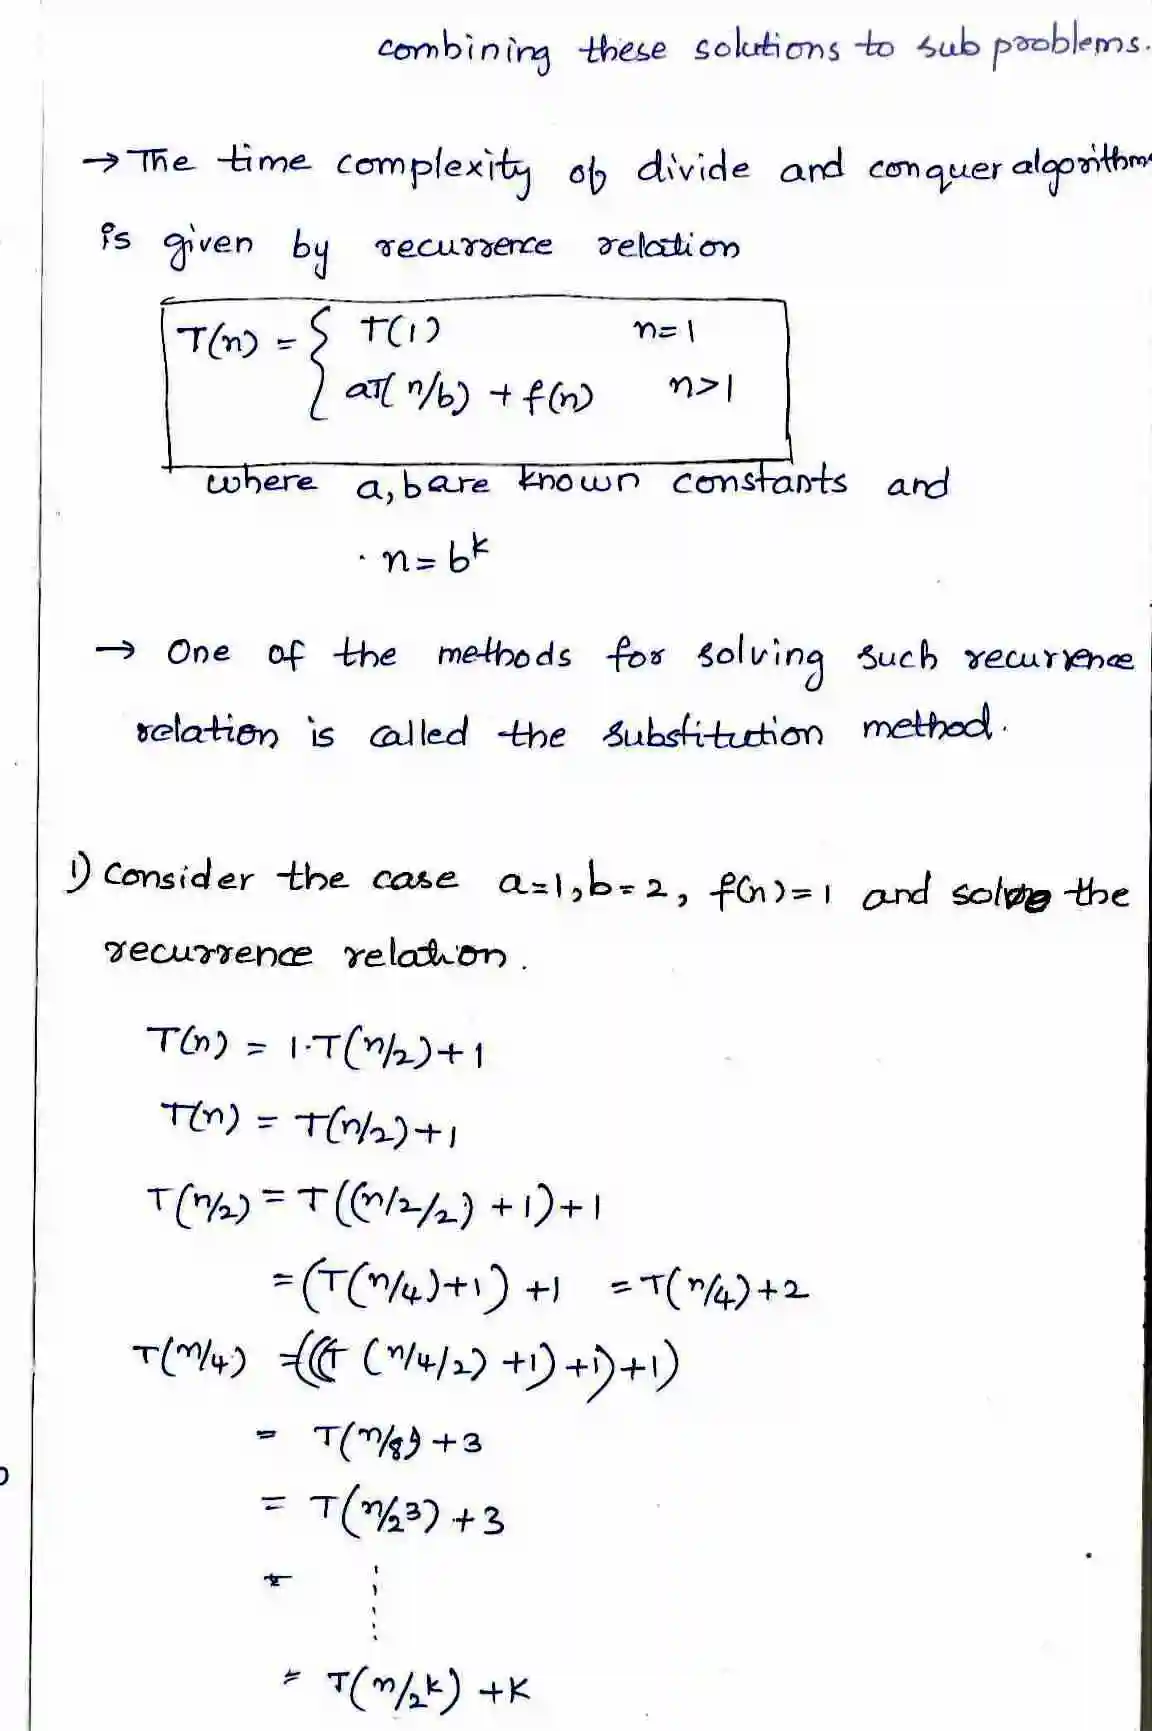 combining these solutions to sub problems.
→ The time complexity of divide and conquer algorithms
is given by recurrence relation
T(n) = { T(1) n=1
aT(n/b) + f(n) n>1
where a, b are known constants and
n = b^k
→ One of the methods for solving such recurrence
relation is called the substitution method.
1) Consider the case a=1, b=2, f(n)=1 and solve the
recurrence relation.
T(n) = 1·T(n/2)+1
T(n) = T(n/2)+1
T(n/2) = T((n/2/2) +1)+1
=(T(n/4)+1) +1 =T(n/4)+2
T(n/4) =(((T (n/4/2) +1) +1)+1)
= T(n/8) +3
= T(n/2^3) +3
=
= T(n/2^k) +k